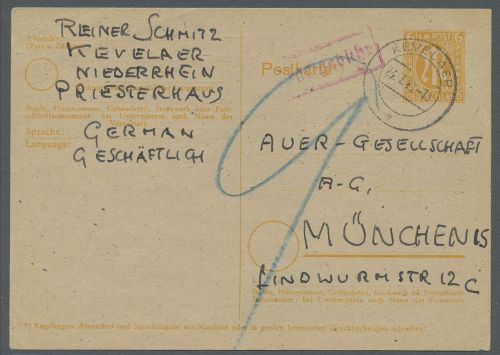 Absender:
REINER SCHMITZ
KEVELAER
NIEDERRHEIN
PRIESTERHAUS
Straße, Hausnummer, Gebäudeteil, Stockwerk oder Post-
schließfachnummer; bei Untermietern auch Name des
Vermieters
Sprache:
Language:
GERMAN
GESCHÄFTLICH
Postkarte
AM POST
6
6
DEUTSCHLAND
KEVELAER
AUER-GESELLSCHAFT
A-G,
MÜNCHEN 15
LINDWURMSTR 12 C
Straße, Hausnummer, Gebäudeteil, Stockwerk od. Postschließfach-
nummer; bei Untermietern auch Name des Vermieters
*) Empfänger, Absender und Sprachangabe mit Maschine oder in großen lateinischen Druckbuchstaben schreiben!